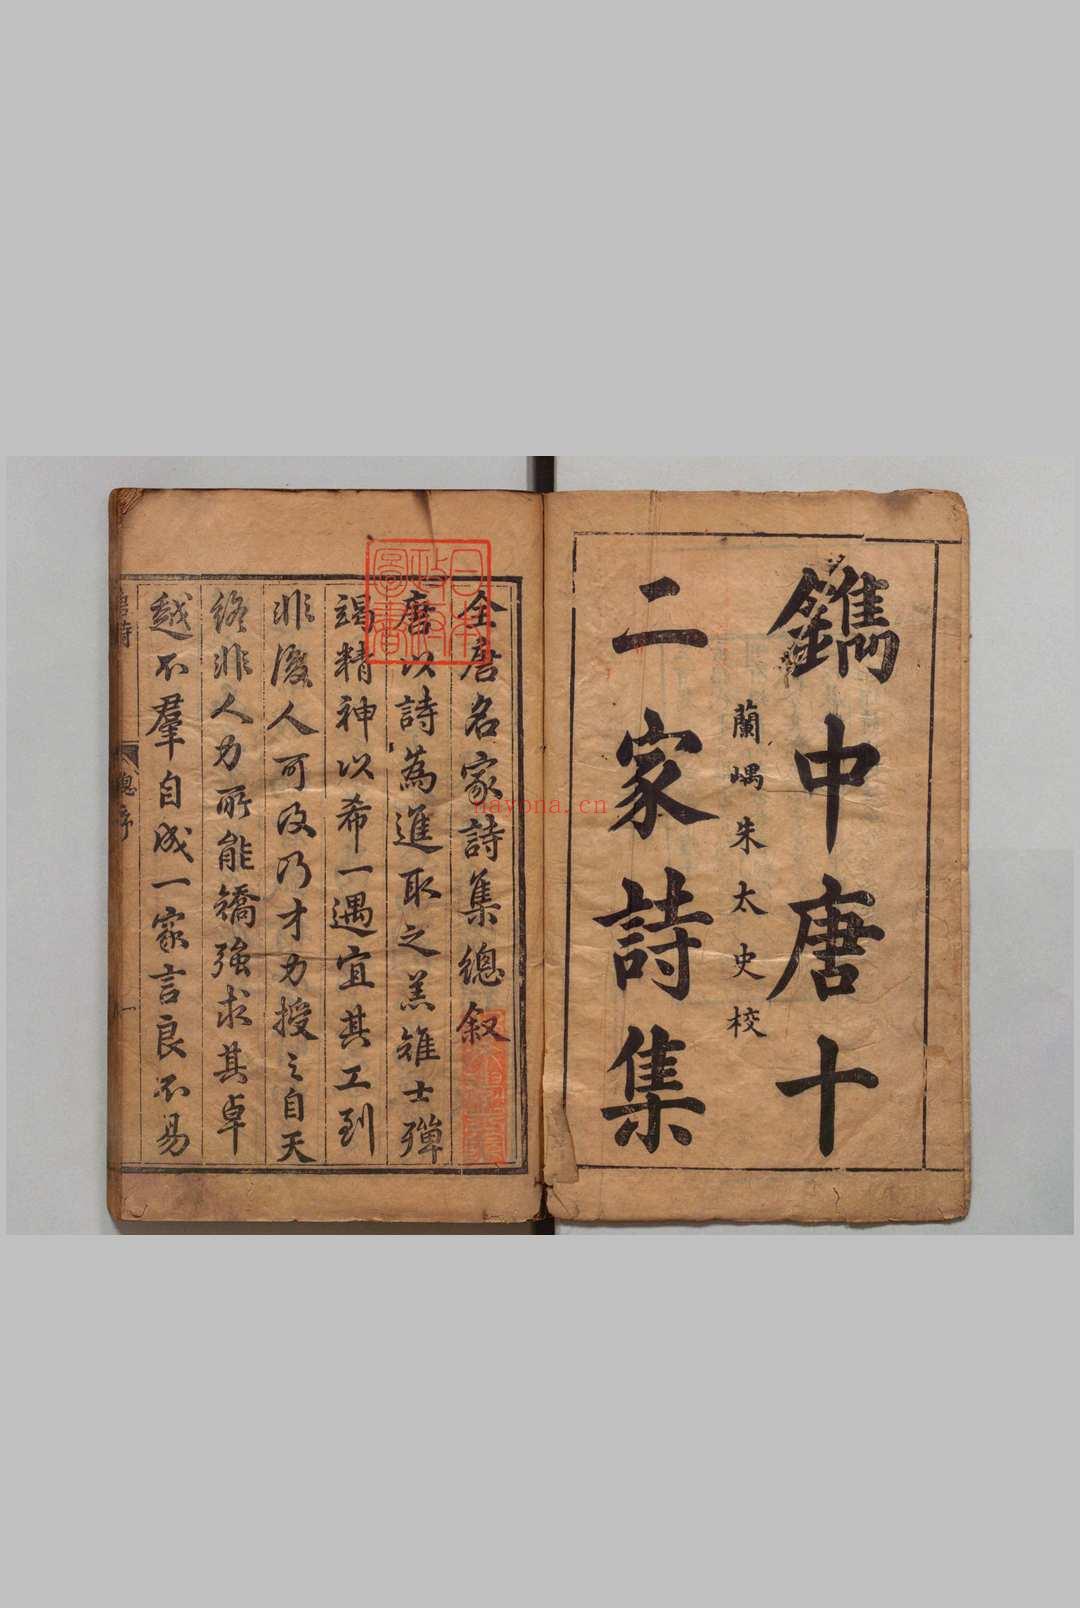 鐫中唐十
蘭嵎朱太史校
二家詩集
全唐名家詩集總叙
唐以詩為進取之羔雉士殫
竭精神以希一遇宜其工到
非後人可及乃才力授之自天
終非人力所能矯強求其卓
越不羣自成一家言良不易
唐詩
總序
一
日本
政府
圖書
nayona.cn